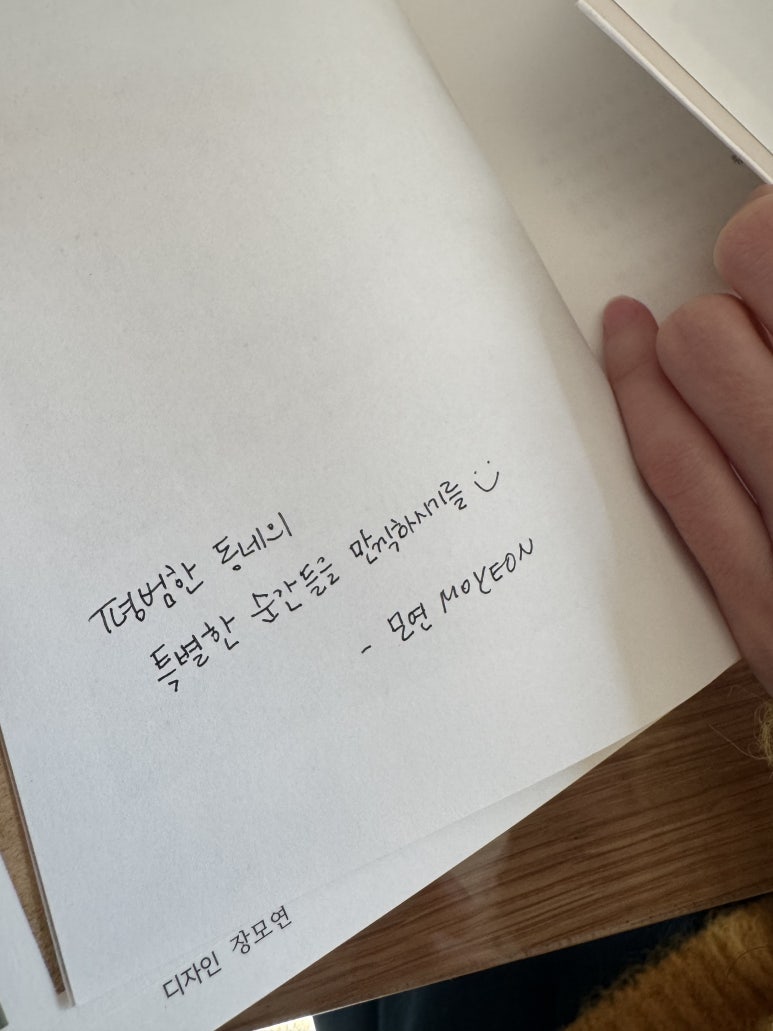 평범한 동네의
특별한 순간들을 만끽하시기를 :)
- 모연 MOYEON
디자인 장모연